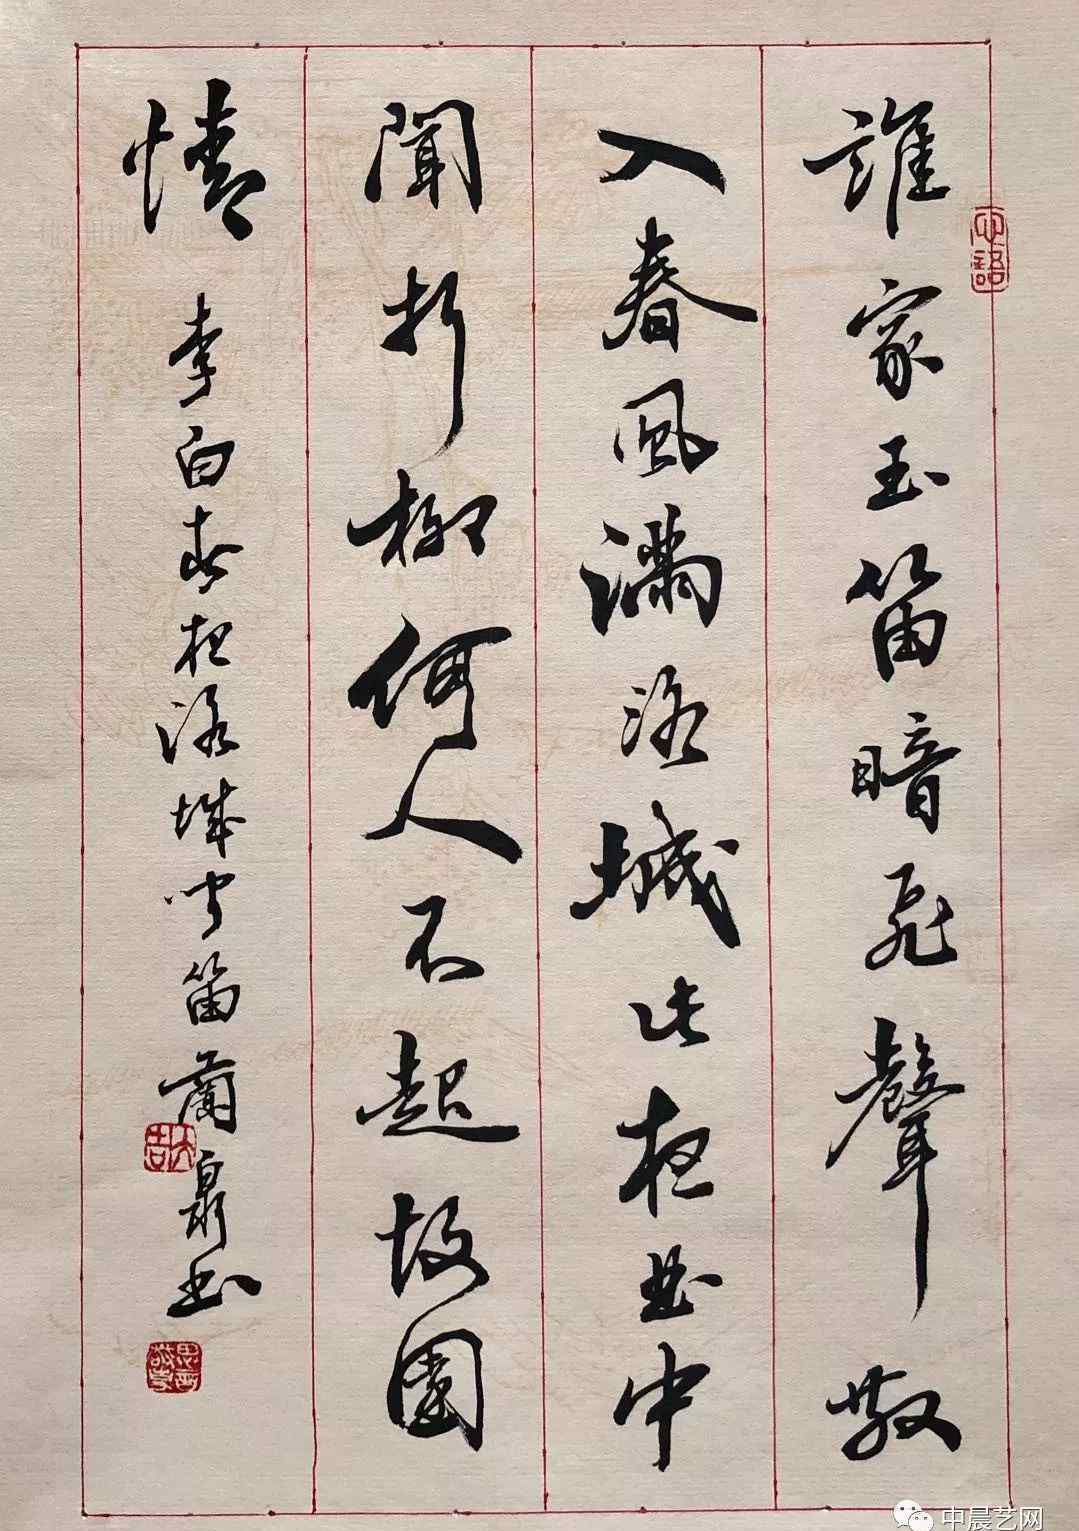 誰家玉笛暗飛聲散
入春風滿洛城此夜曲中
聞折柳何人不起故園
情
李白春夜洛城聞笛蘭泉书
心語
大吉
中晨艺网